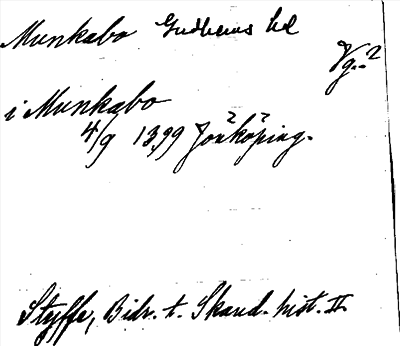 Munkabo Gudhems hd
Vg.?
i Munkabo
4/9 1399 Jonköping.
Styffe, Bidr. t. Skand. hist. II